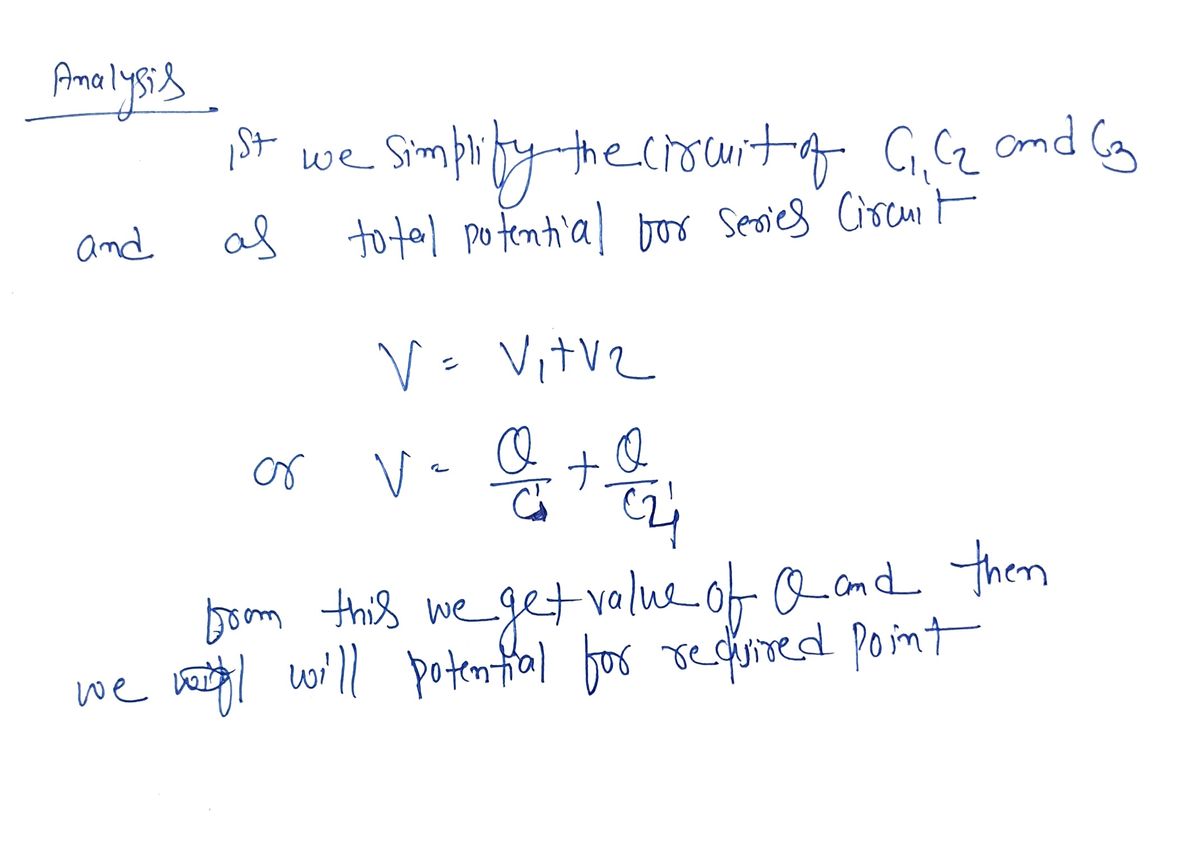 Analysis
1st we Simplify the circuit of C1, C2 and C3
and as total potential for series Circuit
V = V1+V2
or V = Q/C1' + Q/C2'
from this we get value of Q and then
we will potential for required point